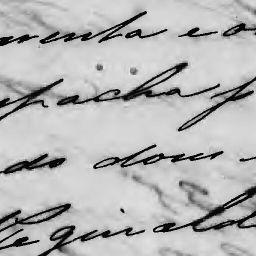 menta e o
spacha p
do dom
Reginald